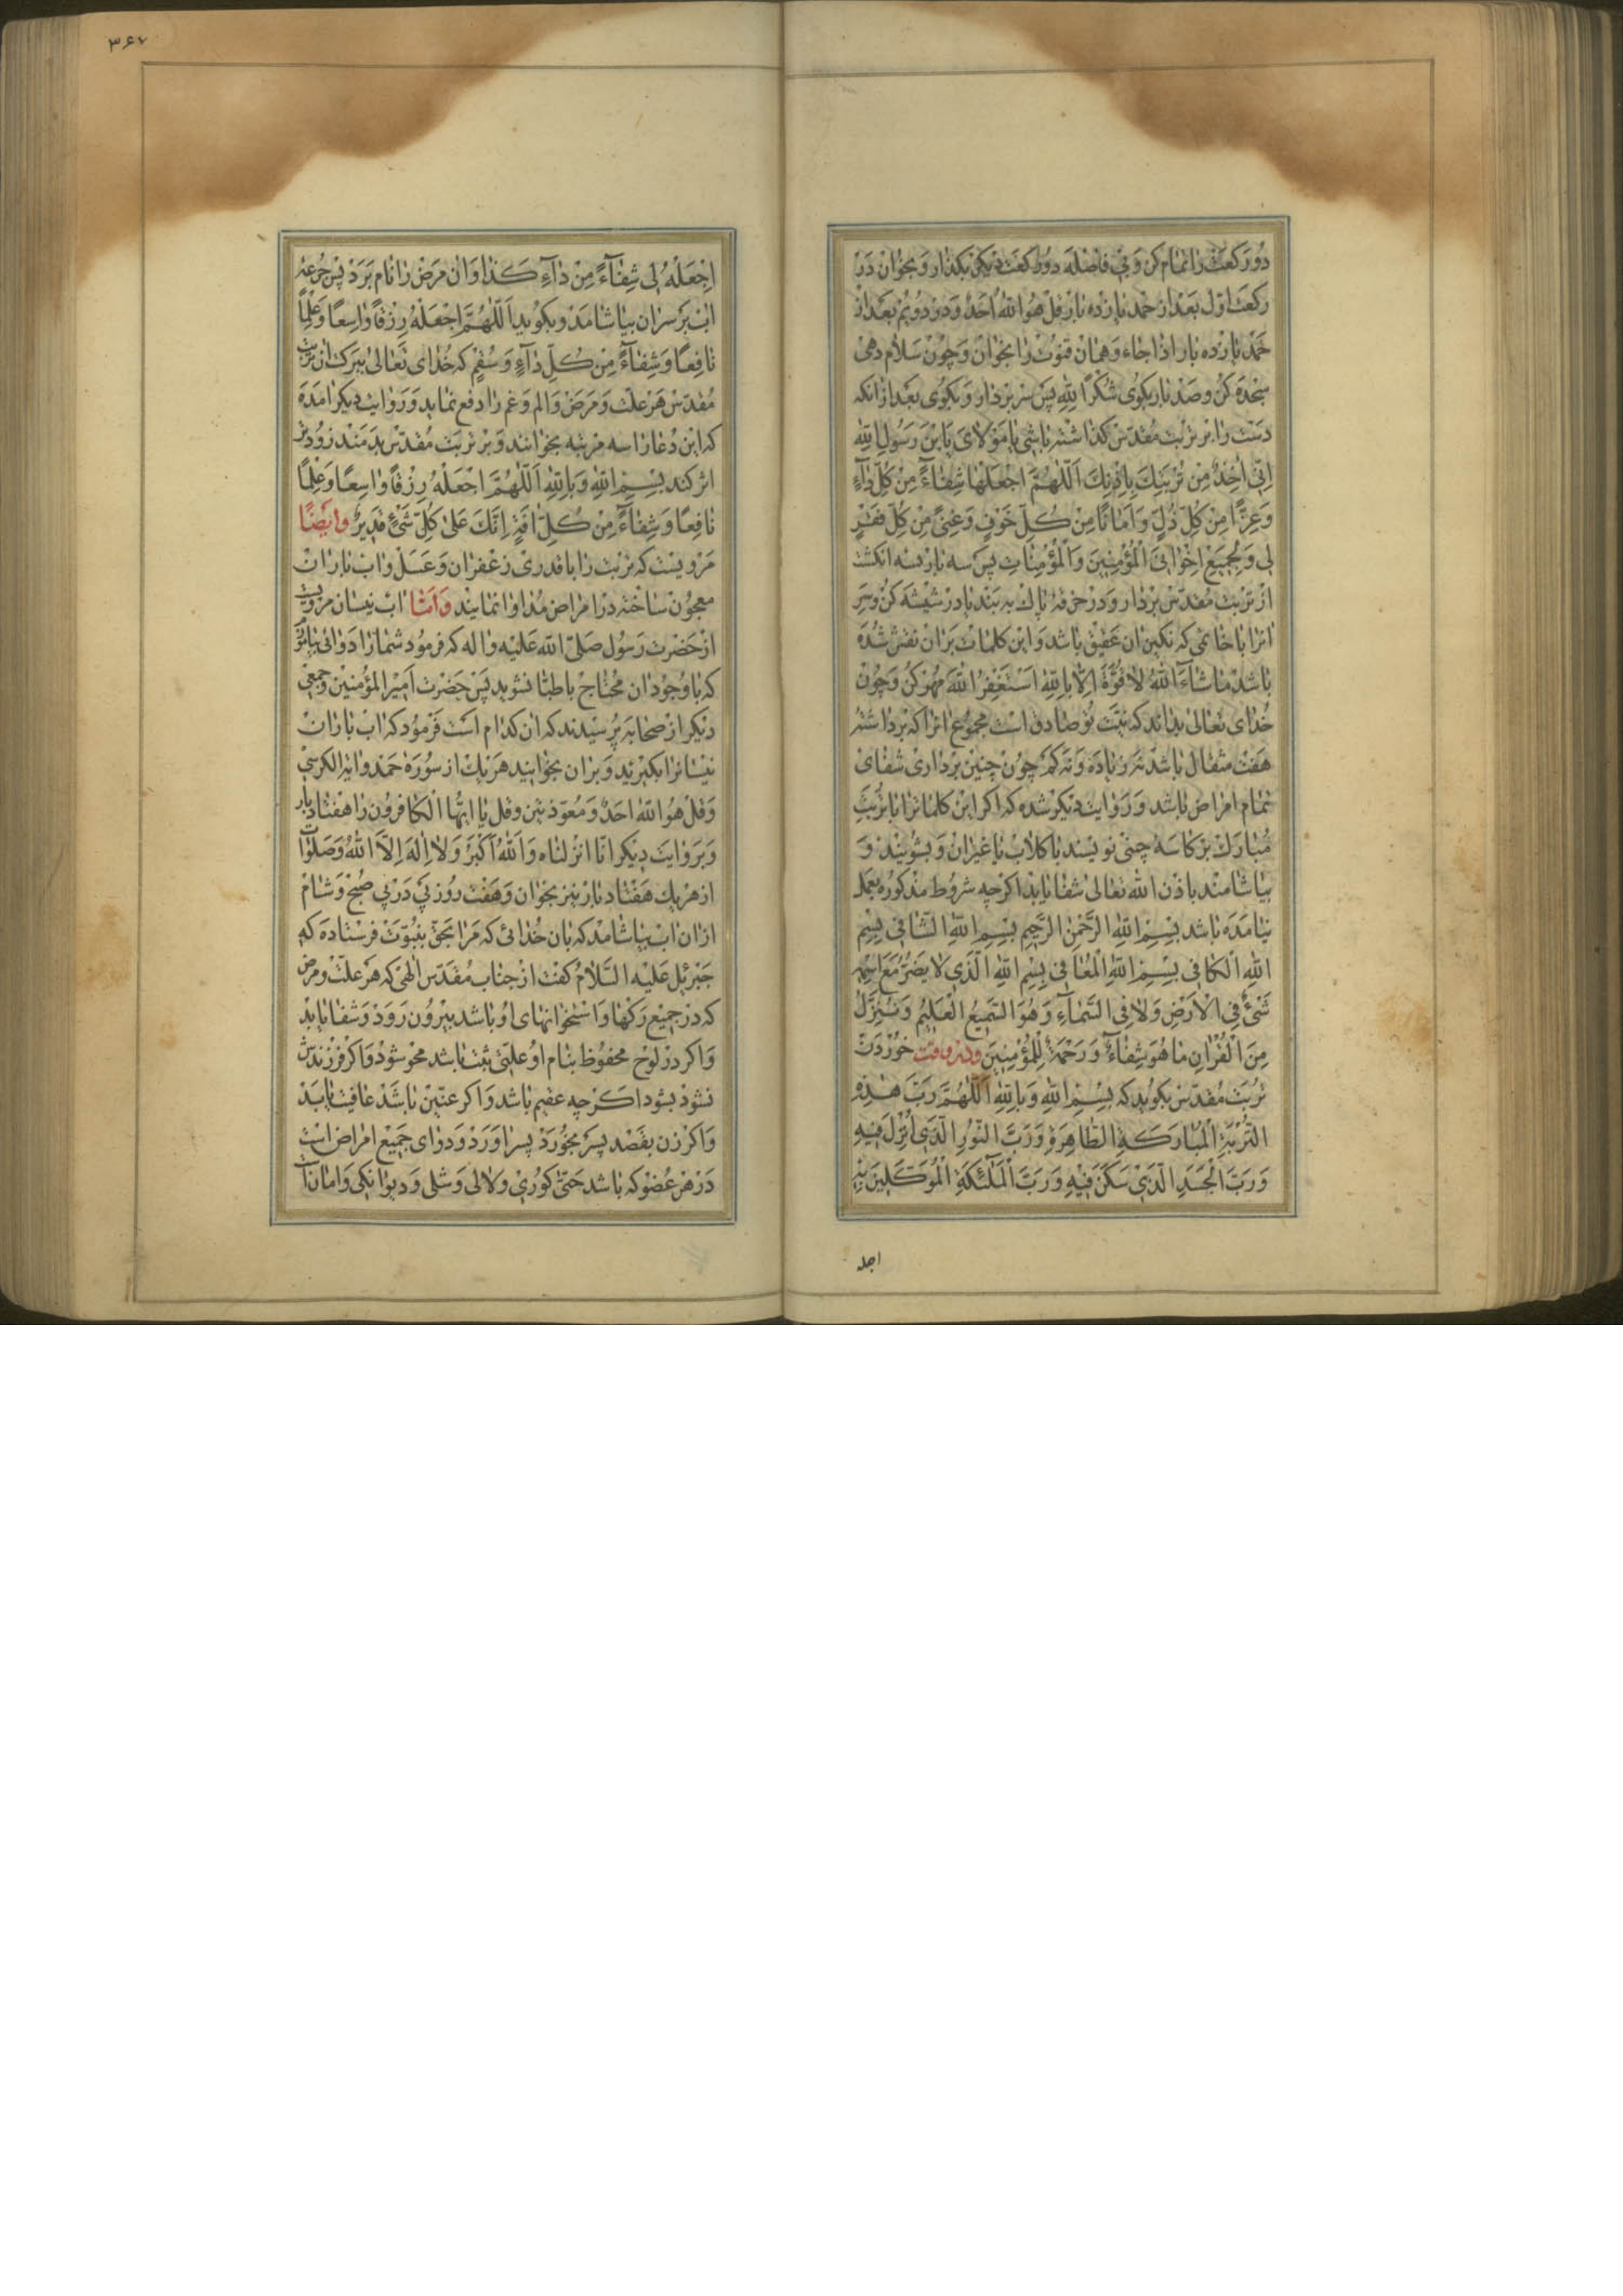 دو رکعت را تمام کن و بی فاصله دو رکعت دیگر بگذار و بخوان در
رکعت اول بعد از حمد یازده بار قل هو الله احد و در دویم بعد از
حمد یازده بار اذا جاء و همان قنوت را بخوان و چون سلام دهی
سجده کن و صد بار بگوی شکرا لله پس سر بردار و بگوی بعد از انکه
دست را بر تربت مقدس گذاشته باشی یا مولای یا بن رسول الله
انی اخذ من تربتک باذنک اللهم اجعلها شفاء من کل داء
و عزا من کل ذل و امانا من کل خوف و غنی من کل فقر
لی و لجمیع اخوانی المؤمنین و المؤمنات پس سه بار بسه انکشت
از تربت مقدس بردار و در خرقهٔ پاک به بند یا در شیشه کن و سر
انرا با خاتمی که نکین ان عقیق باشد و این کلمات بر ان نقش شده
باشد ما شاء الله لا قوة الا بالله استغفر الله مهر کن و چون
خدای تعالی بداند که نیت تو صادق است مجموع انرا که برداشته
هفت مثقال باشد نه زیاده و نه کم چون چنین برداری شفای
تمام امراض باشد و روایت دیگر شده که اکر این کلماترا با تربت
مبارک بر کاسه چینی نویسند با کلاب یا غیر ان و بشویند و
بیاشامند باذن الله تعالی شفا یابد اکرچه شروط مذکوره بعمل
نیامده باشد بسم الله الرحمن الرحیم بسم الله الشافی بسم
الله الکافی بسم الله المعافی بسم الله الذی لا یضر مع اسمه
شیء فی الارض ولا فی السماء و هو السمیع العلیم و ننزل
من القران ما هو شفاء و رحمة للمؤمنین و در وقت خوردن
تربت مقدس بکوید که بسم الله و بالله اللهم رب هذه
التربة المبارکة الطاهرة و رب النور الذی انزل فیه
و رب الجسد الذی سکن فیه و رب الملائکة الموکلین به
اجله
۳۶۷
اجعله لی شفاء من داء کذا و ان مرض را نام برد پس جرعه
اب بر سر ان بیاشامد و بکوید اللهم اجعله رزقا واسعا و علما
نافعا و شفاء من کل داء و سقم که خدای تعالی ببرکت ان تربت
مقدس هر علت و مرض و الم و غم را دفع نماید و روایت دیکر امده
که این دعا را سه مرتبه بخوانند و بر تربت مقدس بدمند زودتر
اثر کند بسم الله و بالله اللهم اجعله رزقا واسعا و علما
نافعا و شفاء من کل افة انک علی کل شیء قدیر و ایضا
مرویست که تربت را با قدری زعفران و عسل و اب باران
معجون ساخته در امراض مداوا نمایند و اما اب نیسان مرویست
از حضرت رسول صلی الله علیه و اله که فرمود شما را دوائی بیاموزم
که با وجود ان محتاج باطبا نشوید پس حضرت امیر المؤمنین و جمعی
دیکر از صحابه پرسیدند که ان کدام است فرمود که اب باران
نیسانرا بکیرید و بر ان بخوانید هر یک از سورهٔ حمد و ایة الکرسی
و قل هو الله احد و معوذتین و قل یا ایها الکافرون را هفتاد بار
و بروایت دیکر انا انزلناه و الله اکبر و لا اله الا الله و صلوات
از هر یک هفتاد بار نیز بخوان و هفت روز پی در پی صبح و شام
از ان اب بیاشامد که بان خدائی که مرا بحق بنبوت فرستاده که
جبرئیل علیه السلام کفت از جناب مقدس الهی که هر علت و مرض
که در جمیع رکها و استخوانهای او باشد بیرون رود و شفا یابد
و اکر در لوح محفوظ بنام او علتی ثبت باشد محو شود و اکر فرزندش
نشود بشود اکرچه عقیم باشد و اکر عنین باشد عافیت یابد
و اکر زن بقصد پسر بخورد پسر اورد و دوای جمیع امراض است
در هر عضو که باشد حتی کوری و لالی و شلی و دیوانکی و امان ان